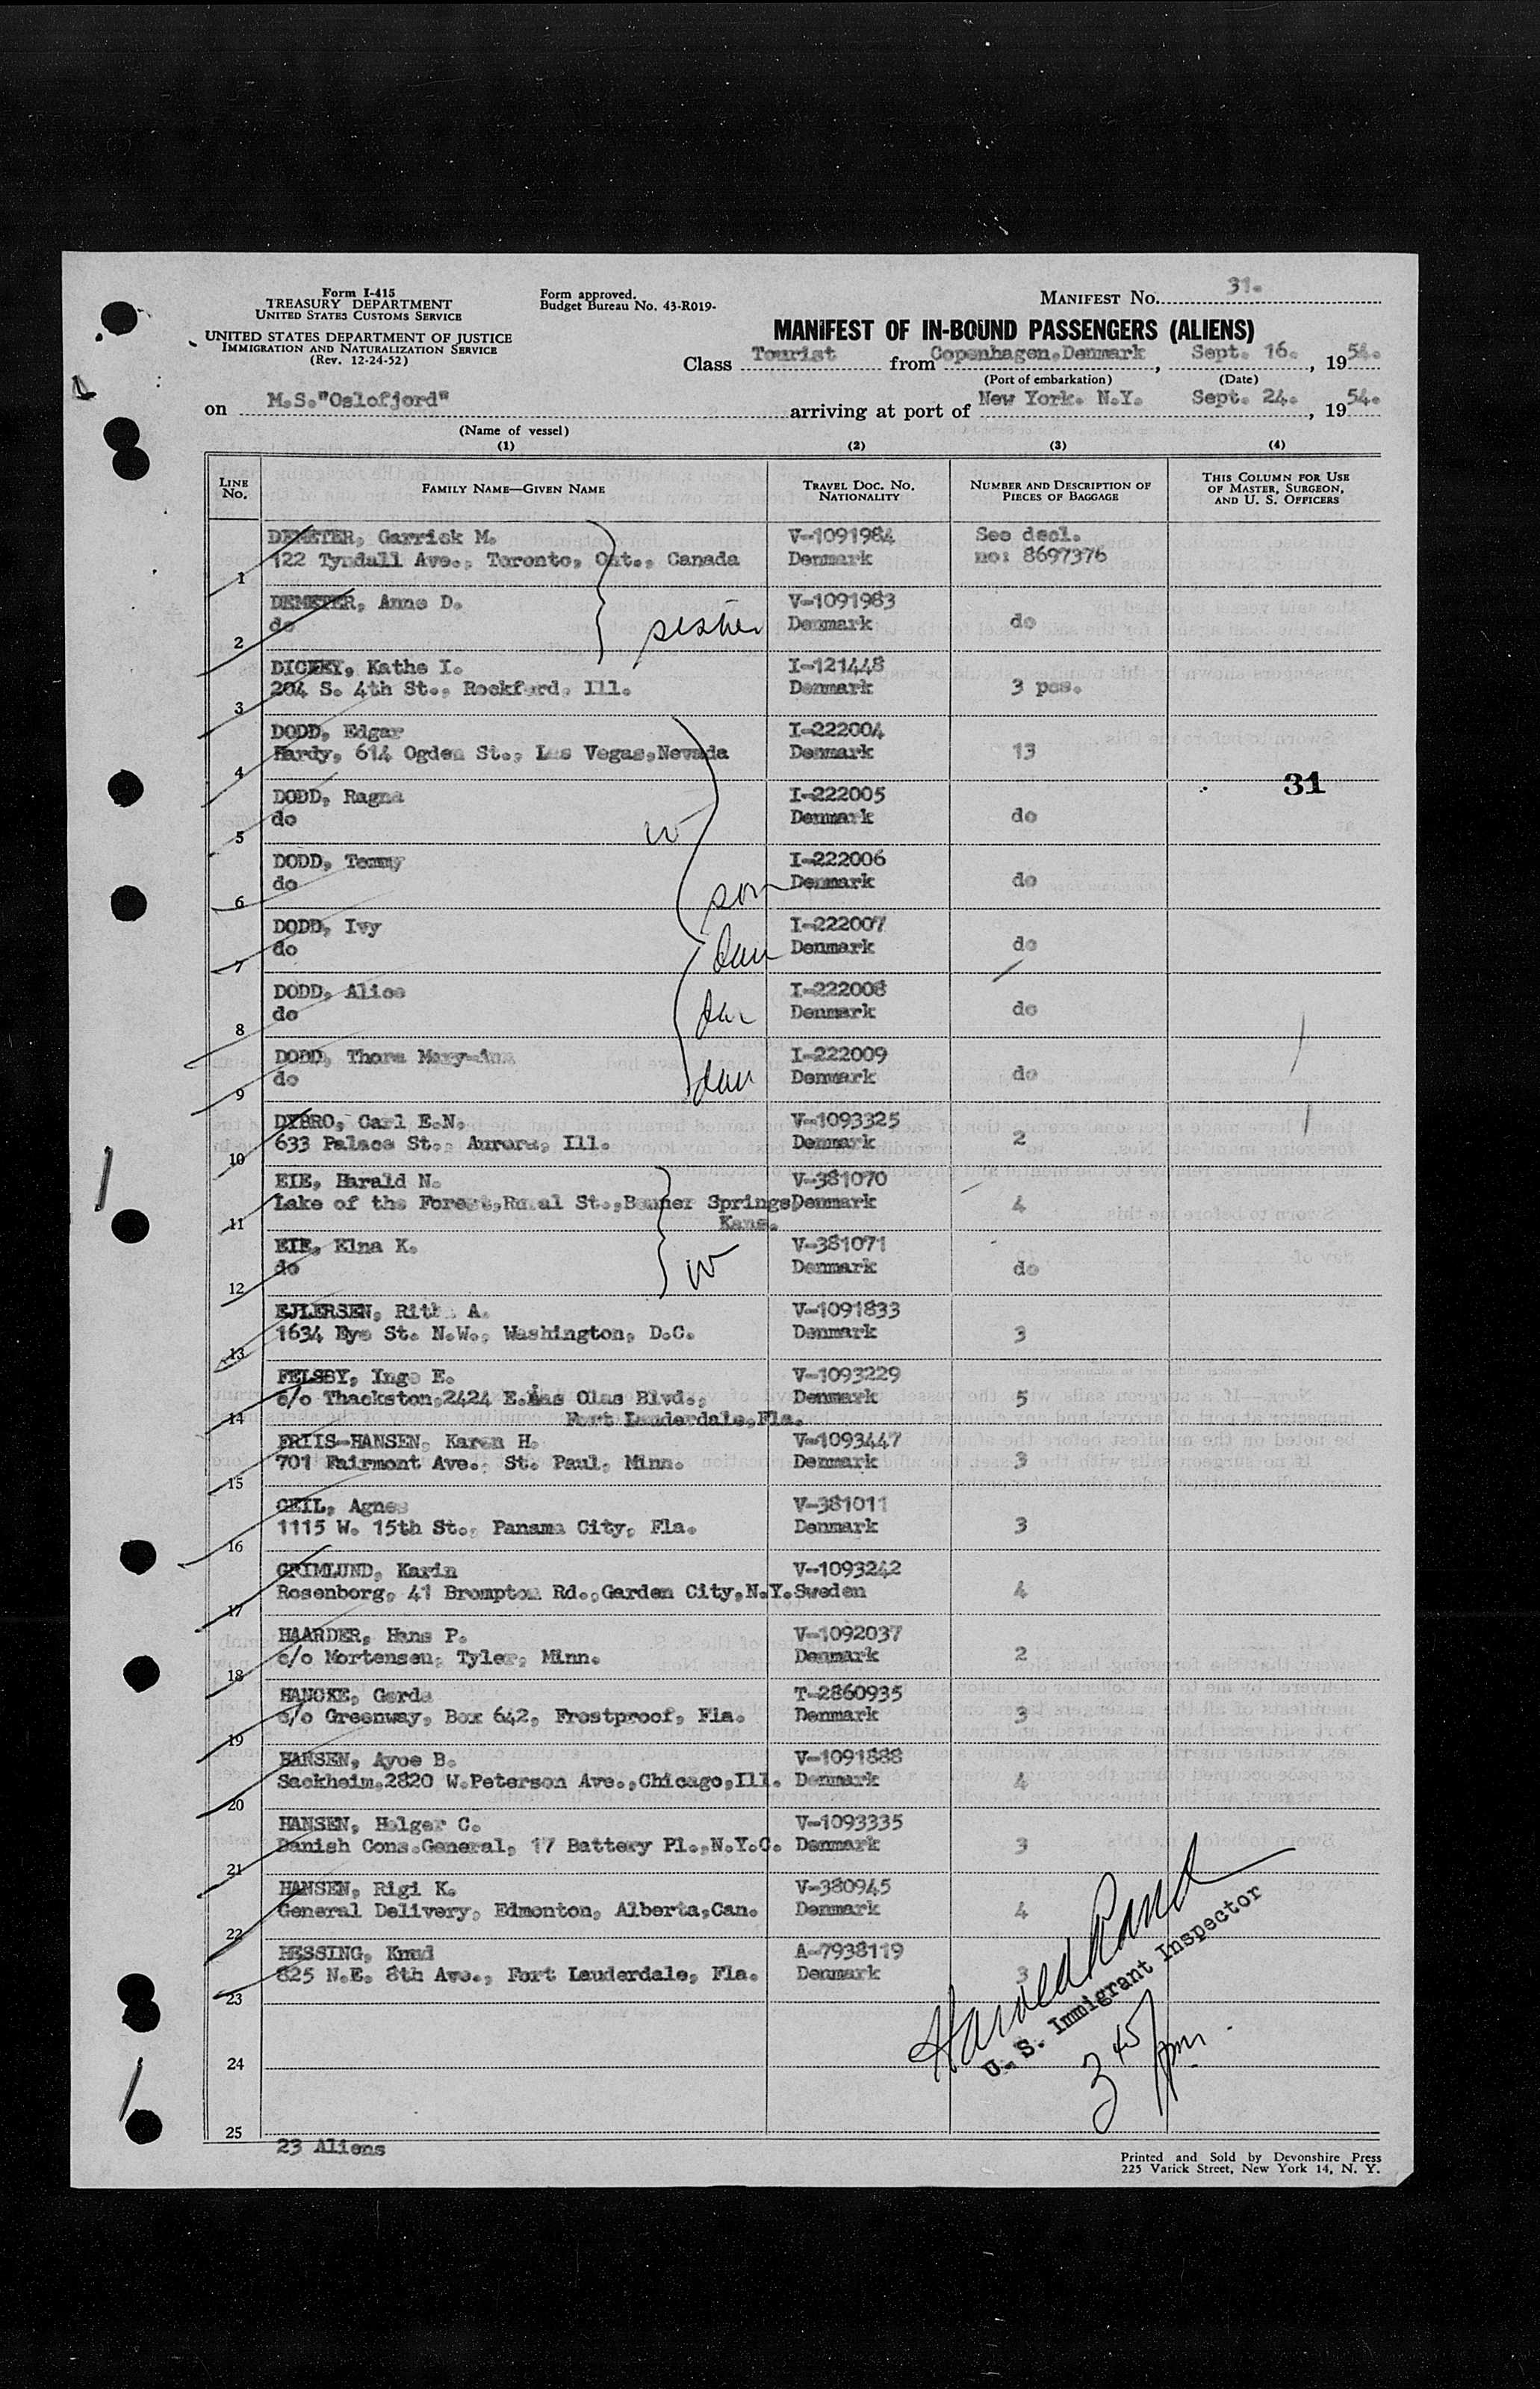 Form I-415
TREASURY DEPARTMENT
UNITED STATES CUSTOMS SERVICE
UNITED STATES DEPARTMENT OF JUSTICE
IMMIGRATION AND NATURALIZATION SERVICE
(Rev. 12-24-52)
Form approved.
Budget Bureau No. 43-R019-
MANIFEST No. 31.
MANIFEST OF IN-BOUND PASSENGERS (ALIENS)
Class Tourist from Copenhagen.Denmark, Sept. 16. , 1954.
(Port of embarkation) (Date)
on M.S."Oslofjord" arriving at port of New York. N.Y. Sept. 24. , 1954.
(Name of vessel)
(1) (2) (3) (4)
LINE No. FAMILY NAME—GIVEN NAME TRAVEL DOC. NO. NATIONALITY NUMBER AND DESCRIPTION OF PIECES OF BAGGAGE THIS COLUMN FOR USE OF MASTER, SURGEON, AND U. S. OFFICERS
DEMETER, Garrick M. V-1091984 See decl.
1 122 Tyndall Ave., Toronto, Ont., Canada Denmark no: 8697376
DEMETER, Anne D. V-1091983
2 do sister Denmark do
DICKEY, Kathe I. I-121448
3 204 S. 4th St., Rockford, Ill. Denmark 3 pcs.
DODD, Edgar I-222004
4 Hardy, 614 Ogden St., Las Vegas,Nevada Denmark 13
31
DODD, Ragna I-222005
5 do w Denmark do
DODD, Tommy I-222006
6 do son Denmark do
DODD, Ivy I-222007
7 do dau Denmark do
DODD, Alice I-222008
8 do dau Denmark do
DODD, Thora Mary-Ann I-222009
9 do dau Denmark do
DYBRO, Carl E.N. V-1093325
10 633 Palace St., Aurora, Ill. Denmark 2
EIE, Harald N. V-381070
11 Lake of the Forest,Rural St.,Bonner Springs, Denmark 4
Kans.
EIE, Elna K. V-381071
12 do w Denmark do
EJLERSEN, A. V-1091833
13 1634 Eye St. N.W., Washington, D.C. Denmark 3
FELSBY, Inge E. V-1093229
14 c/o Thackston,2424 E.Las Olas Blvd., Denmark 5
Fort Lauderdale,Fla.
FRIIS-HANSEN, Karen H. V-1093447
15 701 Fairmont Ave., St. Paul, Minn. Denmark 3
GEIL, Agnes V-381011
16 1115 W. 15th St., Panama City, Fla. Denmark 3
GRIMLUND, Karin V-1093242
17 Rosenborg, 41 Brompton Rd.,Garden City,N.Y. Sweden 4
HAARDER, Hans P. V-1092037
18 c/o Mortensen, Tyler, Minn. Denmark 2
HANCKE, Gerda T-2860935
19 c/o Greenway, Box 642, Frostproof, Fla. Denmark 3
HANSEN, Ayoe B. V-1091888
20 Sackheim,2820 W.Peterson Ave.,Chicago,Ill. Denmark 4
HANSEN, Holger C. V-1093335
21 Danish Cons.General, 17 Battery Pl.,N.Y.C. Denmark 3
HANSEN, Rigi K. V-380945
22 General Delivery, Edmonton, Alberta,Can. Denmark 4
HESSING, Knud A-7938119
23 825 N.E. 8th Ave., Fort Lauderdale, Fla. Denmark 3
Harold Rand
U. S. Immigrant Inspector
3 45/pm.
24
25
23 Aliens
Printed and Sold by Devonshire Press
225 Varick Street, New York 14, N. Y.